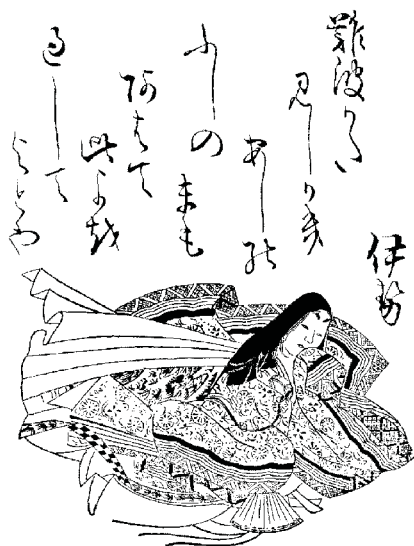 伊勢
難波かた
みしかき
あしの
ふしのまも
あはて
此よを
過して
よとや